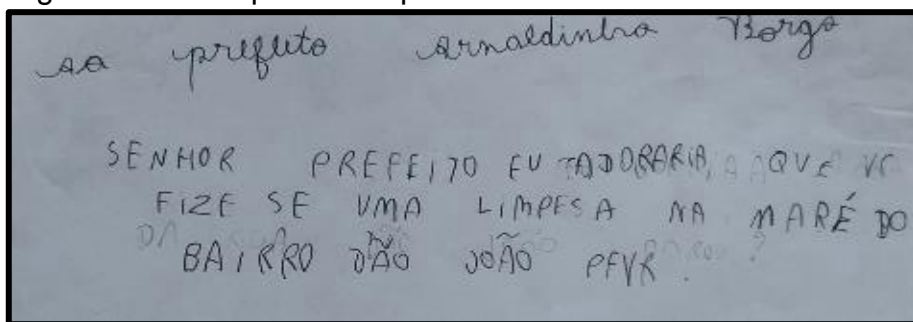 ao prefeito Arnaldinho Borgo
SENHOR PREFEITO EU ADORARIA, QUE VC
FIZE SE UMA LIMPESA NA MARÉ DO
BAIRRO DÃO JOÃO PFVR.